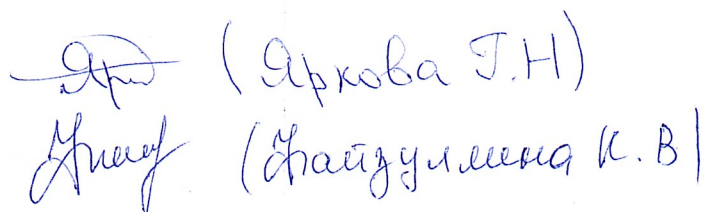 (Яркова Т.Н)
(Файзуллина К.В)